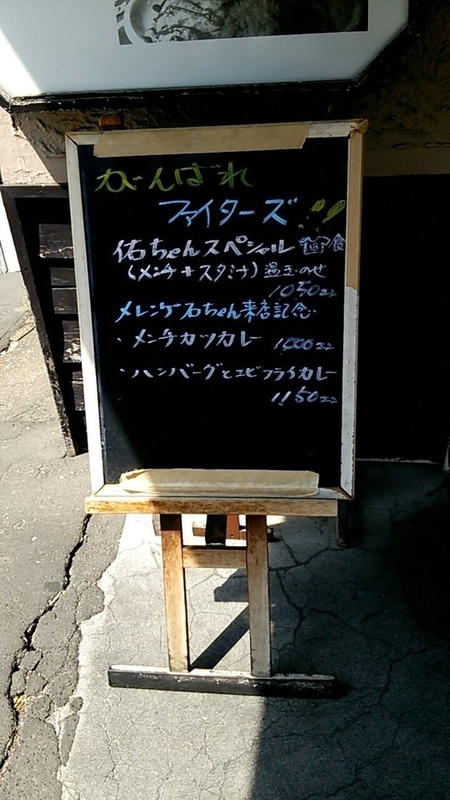 がんばれ
ファイターズ!!
佑ちゃんスペシャル 定食
(メンチ+スタミナ) 温玉のせ
1050
メレンゲ石ちゃん来店記念
・メンチカツカレー 1000
・ハンバーグとエビフライカレー
1150